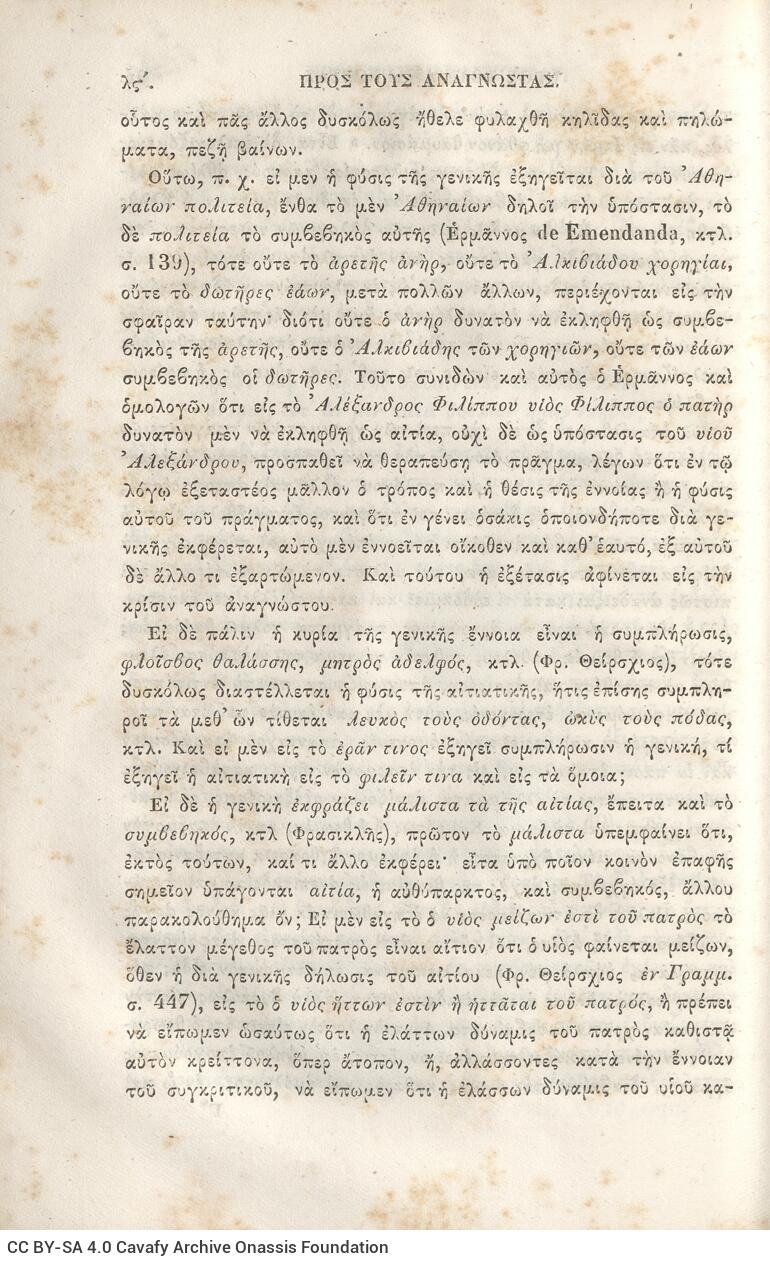 λς΄. ΠΡΟΣ ΤΟΥΣ ΑΝΑΓΝΩΣΤΑΣ.
οὗτος καὶ πᾶς ἄλλος δυσκόλως ἤθελε φυλαχθῆ κηλῖδας καὶ πηλώ-
ματα, πεζῆ βαίνων.
Οὕτω, π. χ. εἰ μεν ἡ φύσις τῆς γενικῆς ἐξηγεῖται διὰ τοῦ Ἀθη-
ναίων πολιτεία, ἔνθα τὸ μὲν Ἀθηναίων δηλοῖ τὴν ὑπόστασιν, τὸ
δὲ πολιτεία τὸ συμβεβηκὸς αὐτῆς (Ἑρμᾶννος de Emendanda, κτλ.
σ. 139), τότε οὔτε τὸ ἀρετῆς ἀνὴρ, οὔτε τὸ Ἀλκιβιάδου χορηγίαι,
οὔτε τὸ δωτῆρες ἐάων, μετὰ πολλῶν ἄλλων, περιέχονται εἰς τὴν
σφαῖραν ταύτην· διότι οὔτε ὁ ἀνὴρ δυνατὸν νὰ ἐκληφθῆ ὡς συμβε-
βηκὸς τῆς ἀρετῆς, οὔτε ὁ Ἀλκιβιάδης τῶν χορηγιῶν, οὔτε τῶν ἐάων
συμβεβηκὸς οἱ δωτῆρες. Τοῦτο συνιδὼν καὶ αὐτὸς ὁ Ἑρμᾶννος καὶ
ὁμολογῶν ὅτι εἰς τὸ Ἀλέξανδρος Φιλίππου υἱὸς Φίλιππος ὁ πατὴρ
δυνατὸν μὲν νὰ ἐκληφθῆ ὡς αἰτία, οὐχὶ δὲ ὡς ὑπόστασις τοῦ υἱοῦ
Ἀλεξάνδρου, προσπαθεῖ νὰ θεραπεύση τὸ πρᾶγμα, λέγων ὅτι ἐν τῷ
λόγῳ ἐξεταστέος μᾶλλον ὁ τρόπος καὶ ἡ θέσις τῆς ἐννοίας ἢ ἡ φύσις
αὐτοῦ τοῦ πράγματος, καὶ ὅτι ἐν γένει ὁσάκις ὁποιονδήποτε διὰ γε-
νικῆς ἐκφέρεται, αὐτὸ μὲν ἐννοεῖται οἴκοθεν καὶ καθ' ἑαυτό, ἐξ αὐτοῦ
δὲ ἄλλο τι ἐξαρτώμενον. Καὶ τούτου ἡ ἐξέτασις ἀφίνεται εἰς τὴν
κρίσιν τοῦ ἀναγνώστου.
Εἰ δὲ πάλιν ἡ κυρία τῆς γενικῆς ἔννοια εἶναι ἡ συμπλήρωσις,
φλοῖσβος θαλάσσης, μητρὸς ἀδελφός, κτλ. (Φρ. Θείρσχιος), τότε
δυσκόλως διαστέλλεται ἡ φύσις τῆς αἰτιατικῆς, ἥτις ἐπίσης συμπλη-
ροῖ τὰ μεθ' ὧν τίθεται λευκὸς τοὺς ὀδόντας, ὠκὺς τοὺς πόδας,
κτλ. Καὶ εἰ μὲν εἰς τὸ ἐρᾶν τινος ἐξηγεῖ συμπλήρωσιν ἡ γενική, τί
ἐξηγεῖ ἡ αἰτιατικὴ εἰς τὸ φιλεῖν τινα καὶ εἰς τὰ ὅμοια;
Εἰ δὲ ἡ γενικὴ ἐκφράζει μάλιστα τὰ τῆς αἰτίας, ἔπειτα καὶ τὸ
συμβεβηκός, κτλ (Φρασικλῆς), πρῶτον τὸ μάλιστα ὑπεμφαίνει ὅτι,
ἐκτὸς τούτων, καί τι ἄλλο ἐκφέρει· εἶτα ὑπὸ ποῖον κοινὸν ἐπαφῆς
σημεῖον ὑπάγονται αἰτία, ἡ αὐθύπαρκτος, καὶ συμβεβηκός, ἄλλου
παρακολούθημα ὄν; Εἰ μὲν εἰς τὸ ὁ υἱὸς μείζων ἐστὶ τοῦ πατρὸς τὸ
ἔλαττον μέγεθος τοῦ πατρὸς εἶναι αἴτιον ὅτι ὁ υἱὸς φαίνεται μείζων,
ὅθεν ἡ διὰ γενικῆς δήλωσις τοῦ αἰτίου (Φρ. Θείρσχιος ἐν Γραμμ.
σ. 447), εἰς τὸ ὁ υἱὸς ἥττων ἐστὶν ἢ ἡττᾶται τοῦ πατρός, ἢ πρέπει
νὰ εἴπωμεν ὡσαύτως ὅτι ἡ ἐλάττων δύναμις τοῦ πατρὸς καθιστᾷ
αὐτὸν κρείττονα, ὅπερ ἄτοπον, ἤ, ἀλλάσσοντες κατὰ τὴν ἔννοιαν
τοῦ συγκριτικοῦ, νὰ εἴπωμεν ὅτι ἡ ἐλάσσων δύναμις τοῦ υἱοῦ κα-
CC BY-SA 4.0 Cavafy Archive Onassis Foundation